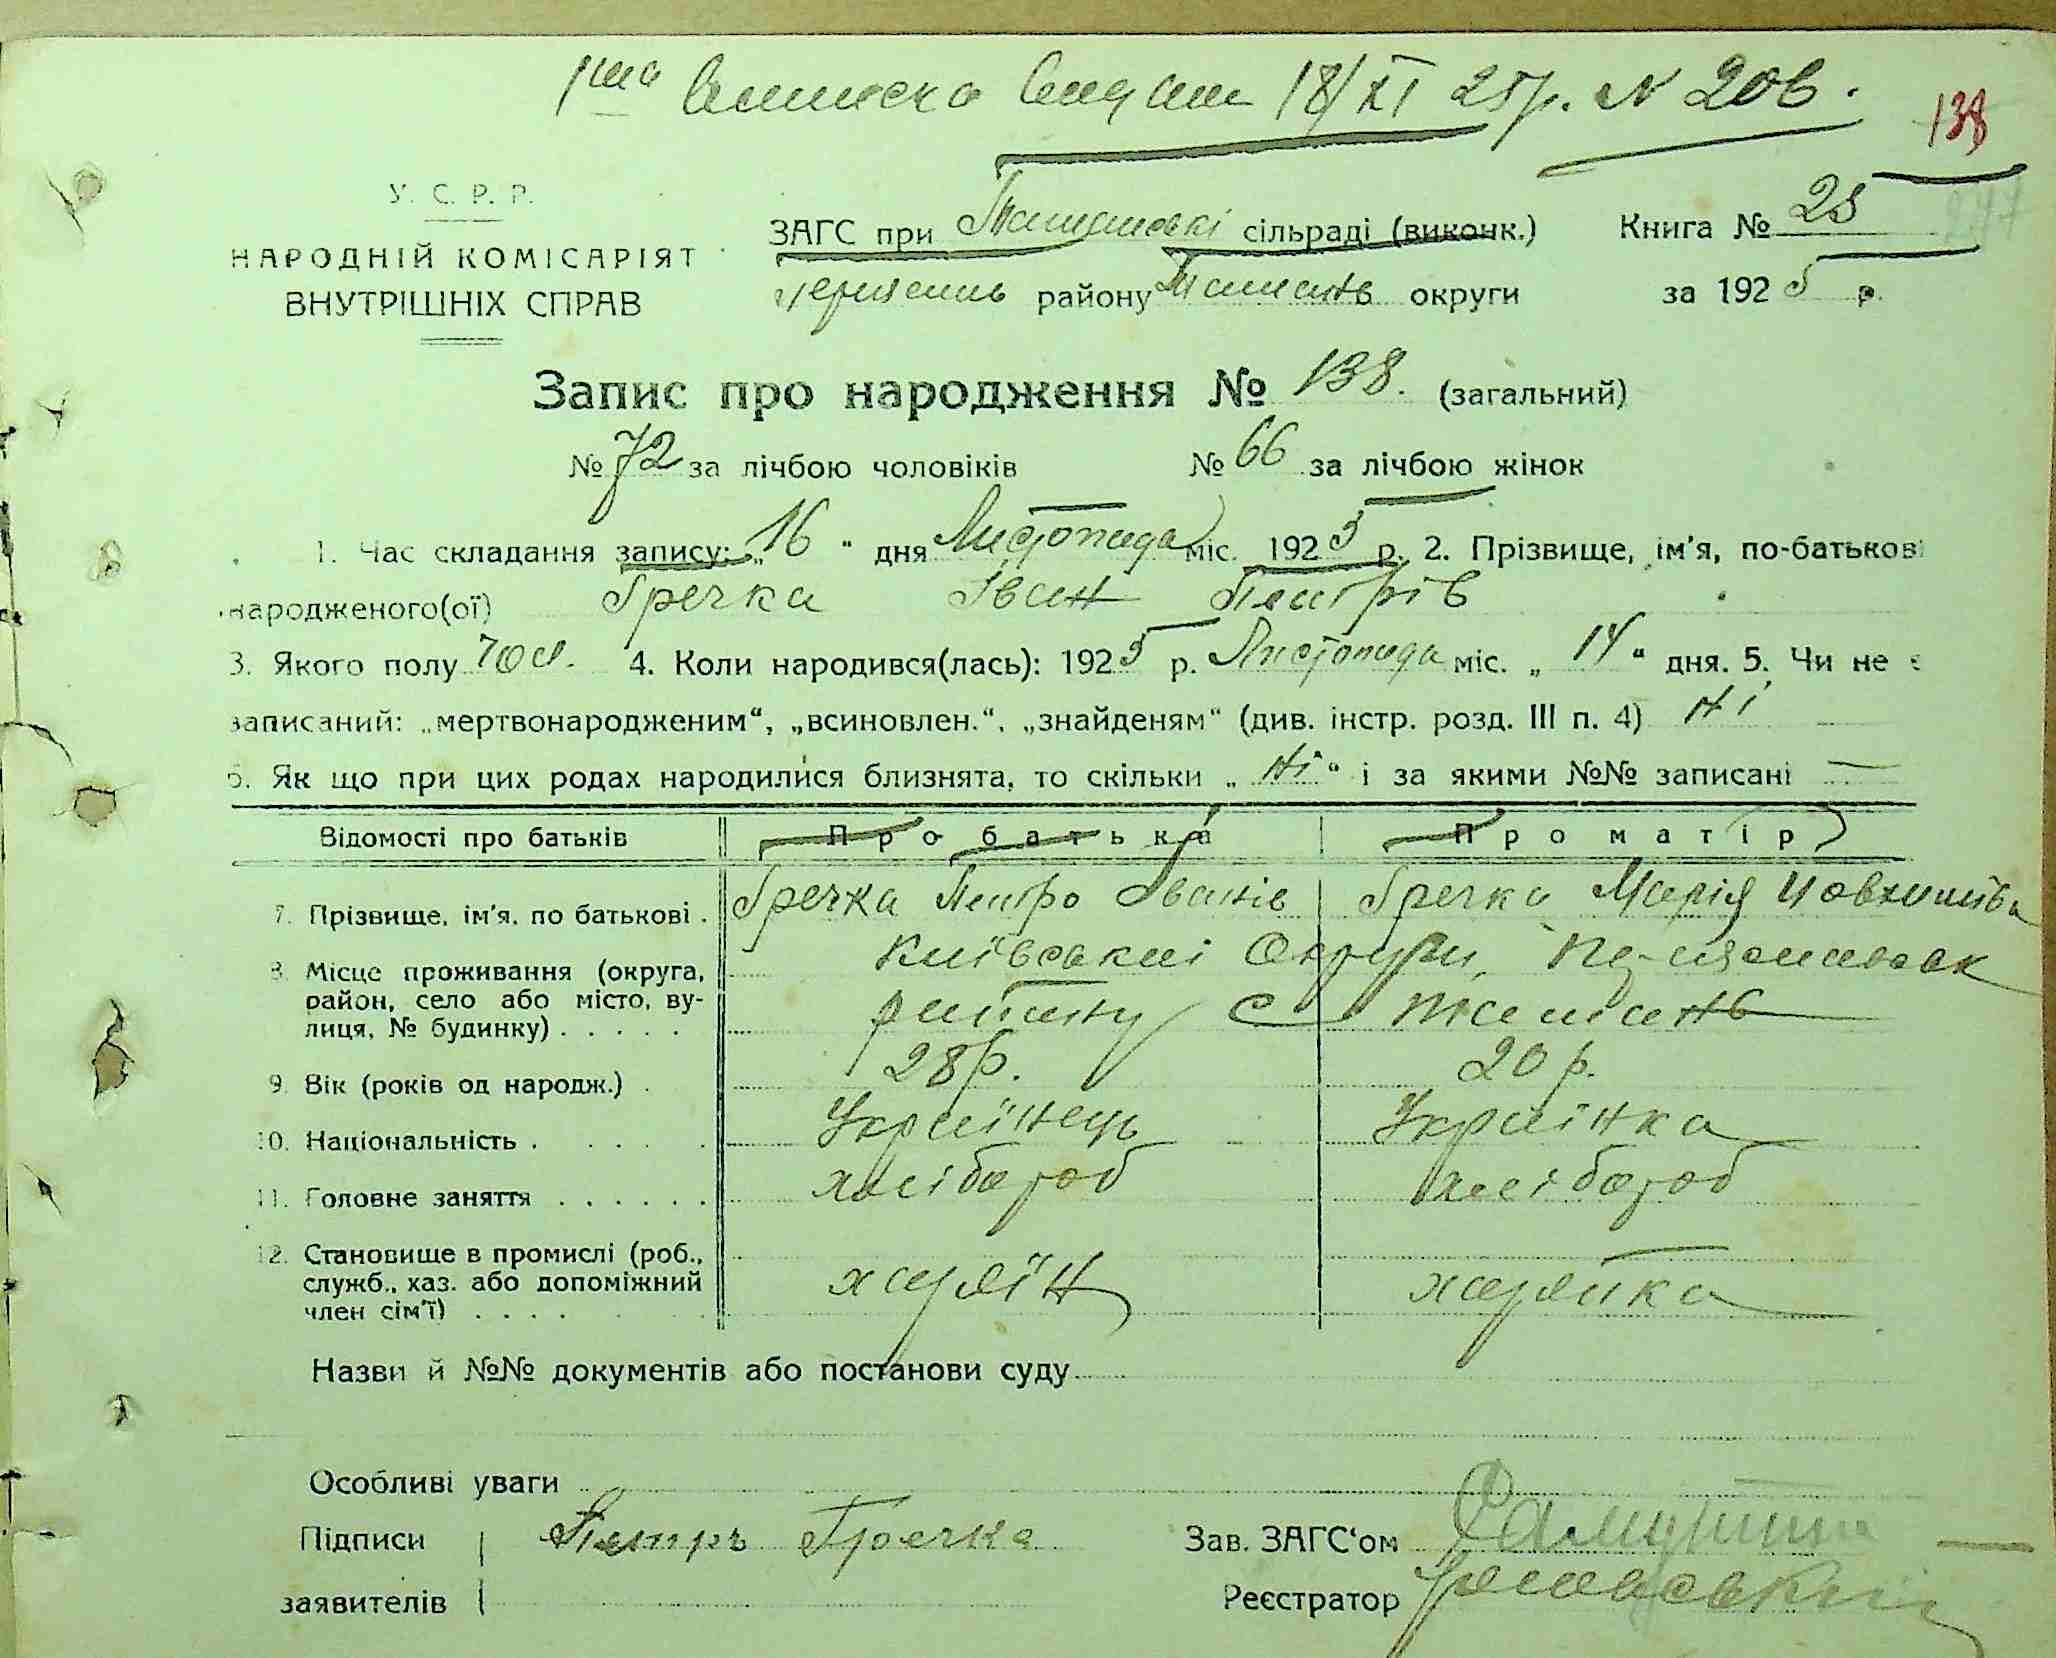 1ша Виписка Видана 18/XI 25р. N 206.
138
У. С. Р. Р.
НАРОДНІЙ КОМІСАРІЯТ
ВНУТРІШНІХ СПРАВ
ЗАГС при сільраді (виконк.)
району округи
Книга № 25
за 1925 р.
Запис про народження № 138. (загальний)
№ 72 за лічбою чоловіків № 66 за лічбою жінок
1. Час складання запису: „16“ дня Листопада міс. 1925 р. 2. Прізвище, ім'я, по-батькові
народженого(ої) Гречка Іван Петрів
3. Якого полу чол. 4. Коли народився(лась): 1925 р. Листопада міс. „14“ дня. 5. Чи не є
записаний: „мертвонародженим“, „всиновлен.“, „знайденям“ (див. інстр. розд. III п. 4) Ні
6. Як що при цих родах народилися близнята, то скільки „Ні“ і за якими №№ записані —
Відомості про батьків Про батька Про матір
7. Прізвище, ім'я, по батькові . Гречка Петро Іванів Гречка Марія
8. Місце проживання (округа, район, село або місто, вулиця, № будинку) . . . . . Київської Округи,
району с
9. Вік (років од народж.) . 28р. 20р.
10. Національність . . . . . Українець Українка
11. Головне заняття . . . . . . хлібороб хлібороб
12. Становище в промислі (роб., служб., хаз. або допоміжний член сім'ї) . . . . хазяїн хазяйка
Назви й №№ документів або постанови суду
Особливі уваги
Підписи заявителів Петръ Гречка
Зав. ЗАГС'ом
Реєстратор